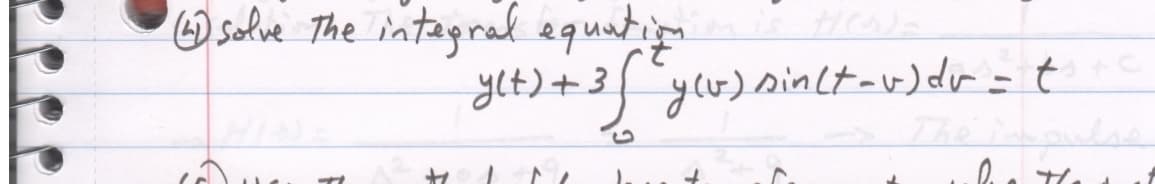 (4) solve the integral equation
y(t) + 3∫₀ᵗ y(v) sin(t-v) dv = t